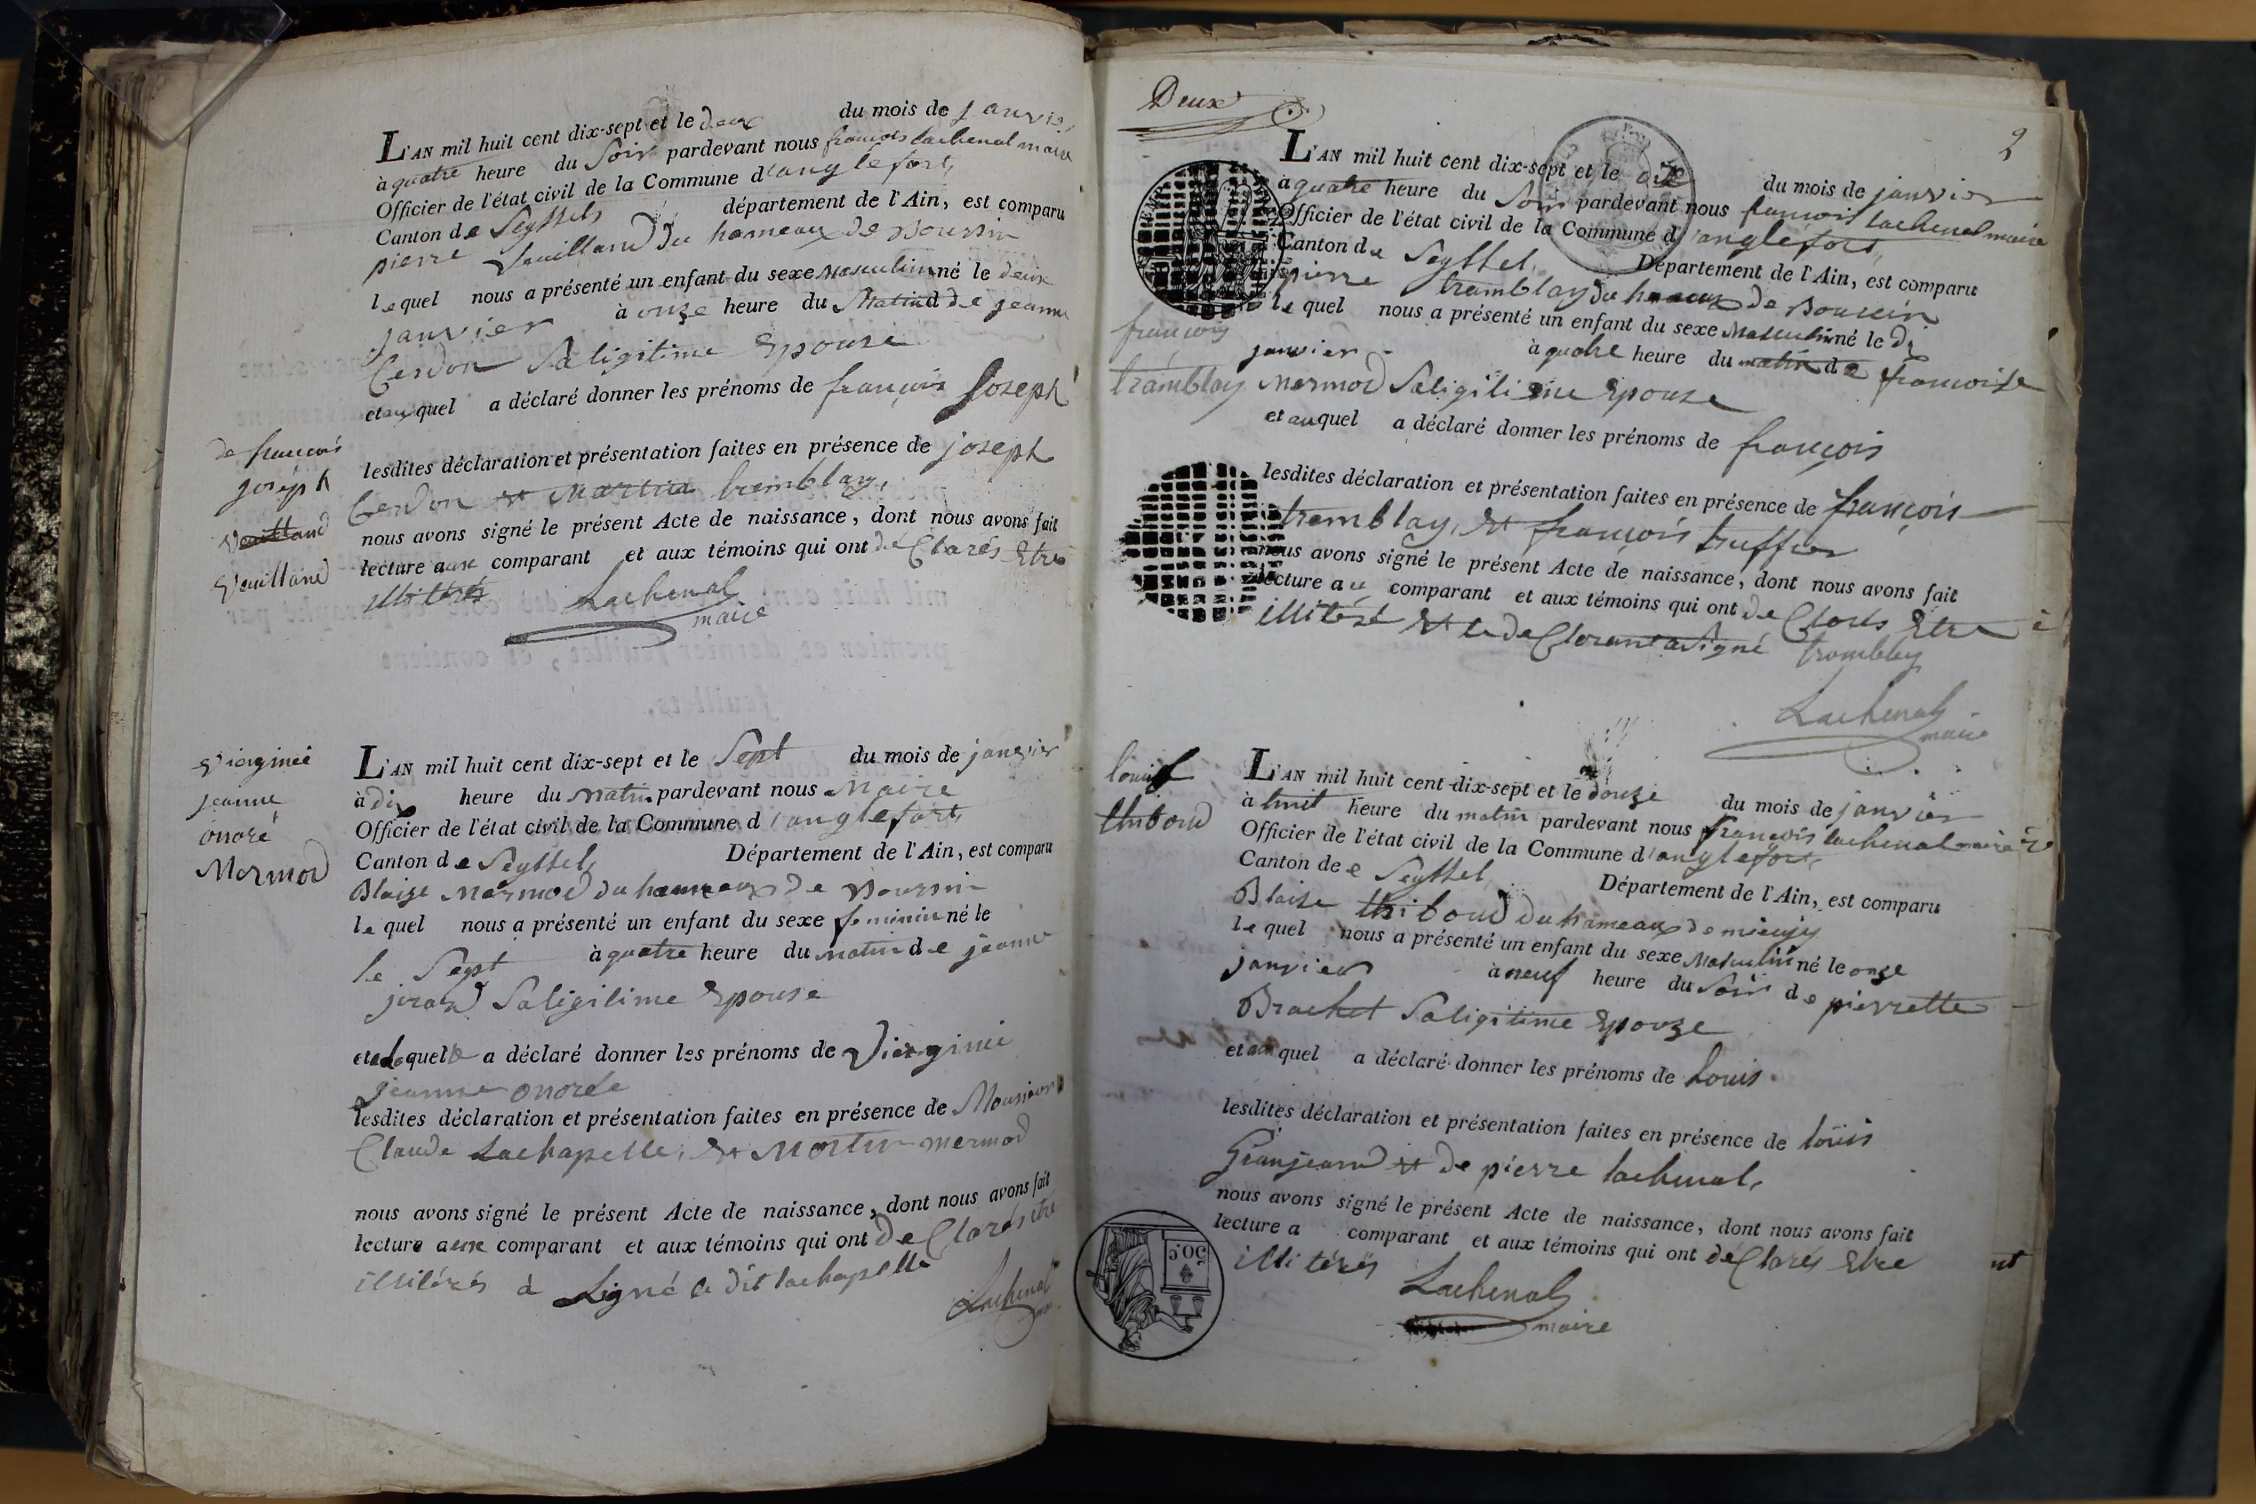 L'AN mil huit cent dix-sept et le deux du mois de janvier
à quatre heure du Soir pardevant nous françois Lachenal maire
Officier de l'état civil de la Commune d'anglefort,
Canton de Seyssel département de l'Ain, est comparu
pierre Veuilland du hameaux de
lequel nous a présenté un enfant du sexe Masculin né le deux
janvier à onze heure du Matin de jeanne
Cerdon Saligitime Epouse
et auquel a déclaré donner les prénoms de françois Joseph
de francois
joseph
Veuilland
Veuilland
lesdites déclaration et présentation faites en présence de joseph
Cerdon et Martin tremblay,
nous avons signé le présent Acte de naissance, dont nous avons fait
lecture aux comparant et aux témoins qui ont déClarés Etre
illitérés Lachenal
maire
Virginie
jeanne
onoré
Mermod
L'AN mil huit cent dix-sept et le Sept du mois de janvier
à dix heure du Matin pardevant nous Maire
Officier de l'état civil de la Commune d'anglefort
Canton de Seyssel Département de l'Ain, est comparu
Blaise Mermod du hameaux de
lequel nous a présenté un enfant du sexe feminin né le
le Sept à quatre heure du matin de jeanne
Saligitime Epouse
et a laquelle a déclaré donner les prénoms de Vierginie
jeanne onorée
lesdites déclaration et présentation faites en présence de Monsieur
Claude Lachapelle, et Martin mermod
nous avons signé le présent Acte de naissance, dont nous avons fait
lecture aux comparant et aux témoins qui ont deClarés etre
illitérés à Signé le dit lachapelle
Lachenal
Deux
2
L'AN mil huit cent dix-sept et le dix du mois de janvier
à quatre heure du Soir pardevant nous françois lachenal maire
Officier de l'état civil de la Commune d'anglefort,
Canton de Seyssel, Département de l'Ain, est comparu
pierre tramblay du hameaux de
lequel nous a présenté un enfant du sexe Masculin né le di
françois
tramblay
janvier à quatre heure du matin de francoise
Mermod Saligitime Epouse
et auquel a déclaré donner les prénoms de françois
lesdites déclaration et présentation faites en présence de françois
tremblay, et françois truffier
nous avons signé le présent Acte de naissance, dont nous avons fait
lecture au comparant et aux témoins qui ont deClarés Etre
illitéré et le deClarant a Signé trambley
Lachenal
maire
louis
thiboud
L'AN mil huit cent dix-sept et le douze du mois de janvier
à huit heure du matin pardevant nous françois lachenal maire
Officier de l'état civil de la Commune d'anglefort,
Canton de e Seyssel, Département de l'Ain, est comparu
Blaise thiboud du hameaux de
lequel nous a présenté un enfant du sexe Masculin né le onze
janvier à neuf heure du Soir de pierrette
Brachet Saligitime Epouze
et auquel a déclaré donner les prénoms de Louis
lesdites déclaration et présentation faites en présence de loüis
Granjeand et de pierre lachenal,
nous avons signé le présent Acte de naissance, dont nous avons fait
lecture a comparant et aux témoins qui ont déClarés Etre
illitérés
Lachenal
maire
50.c